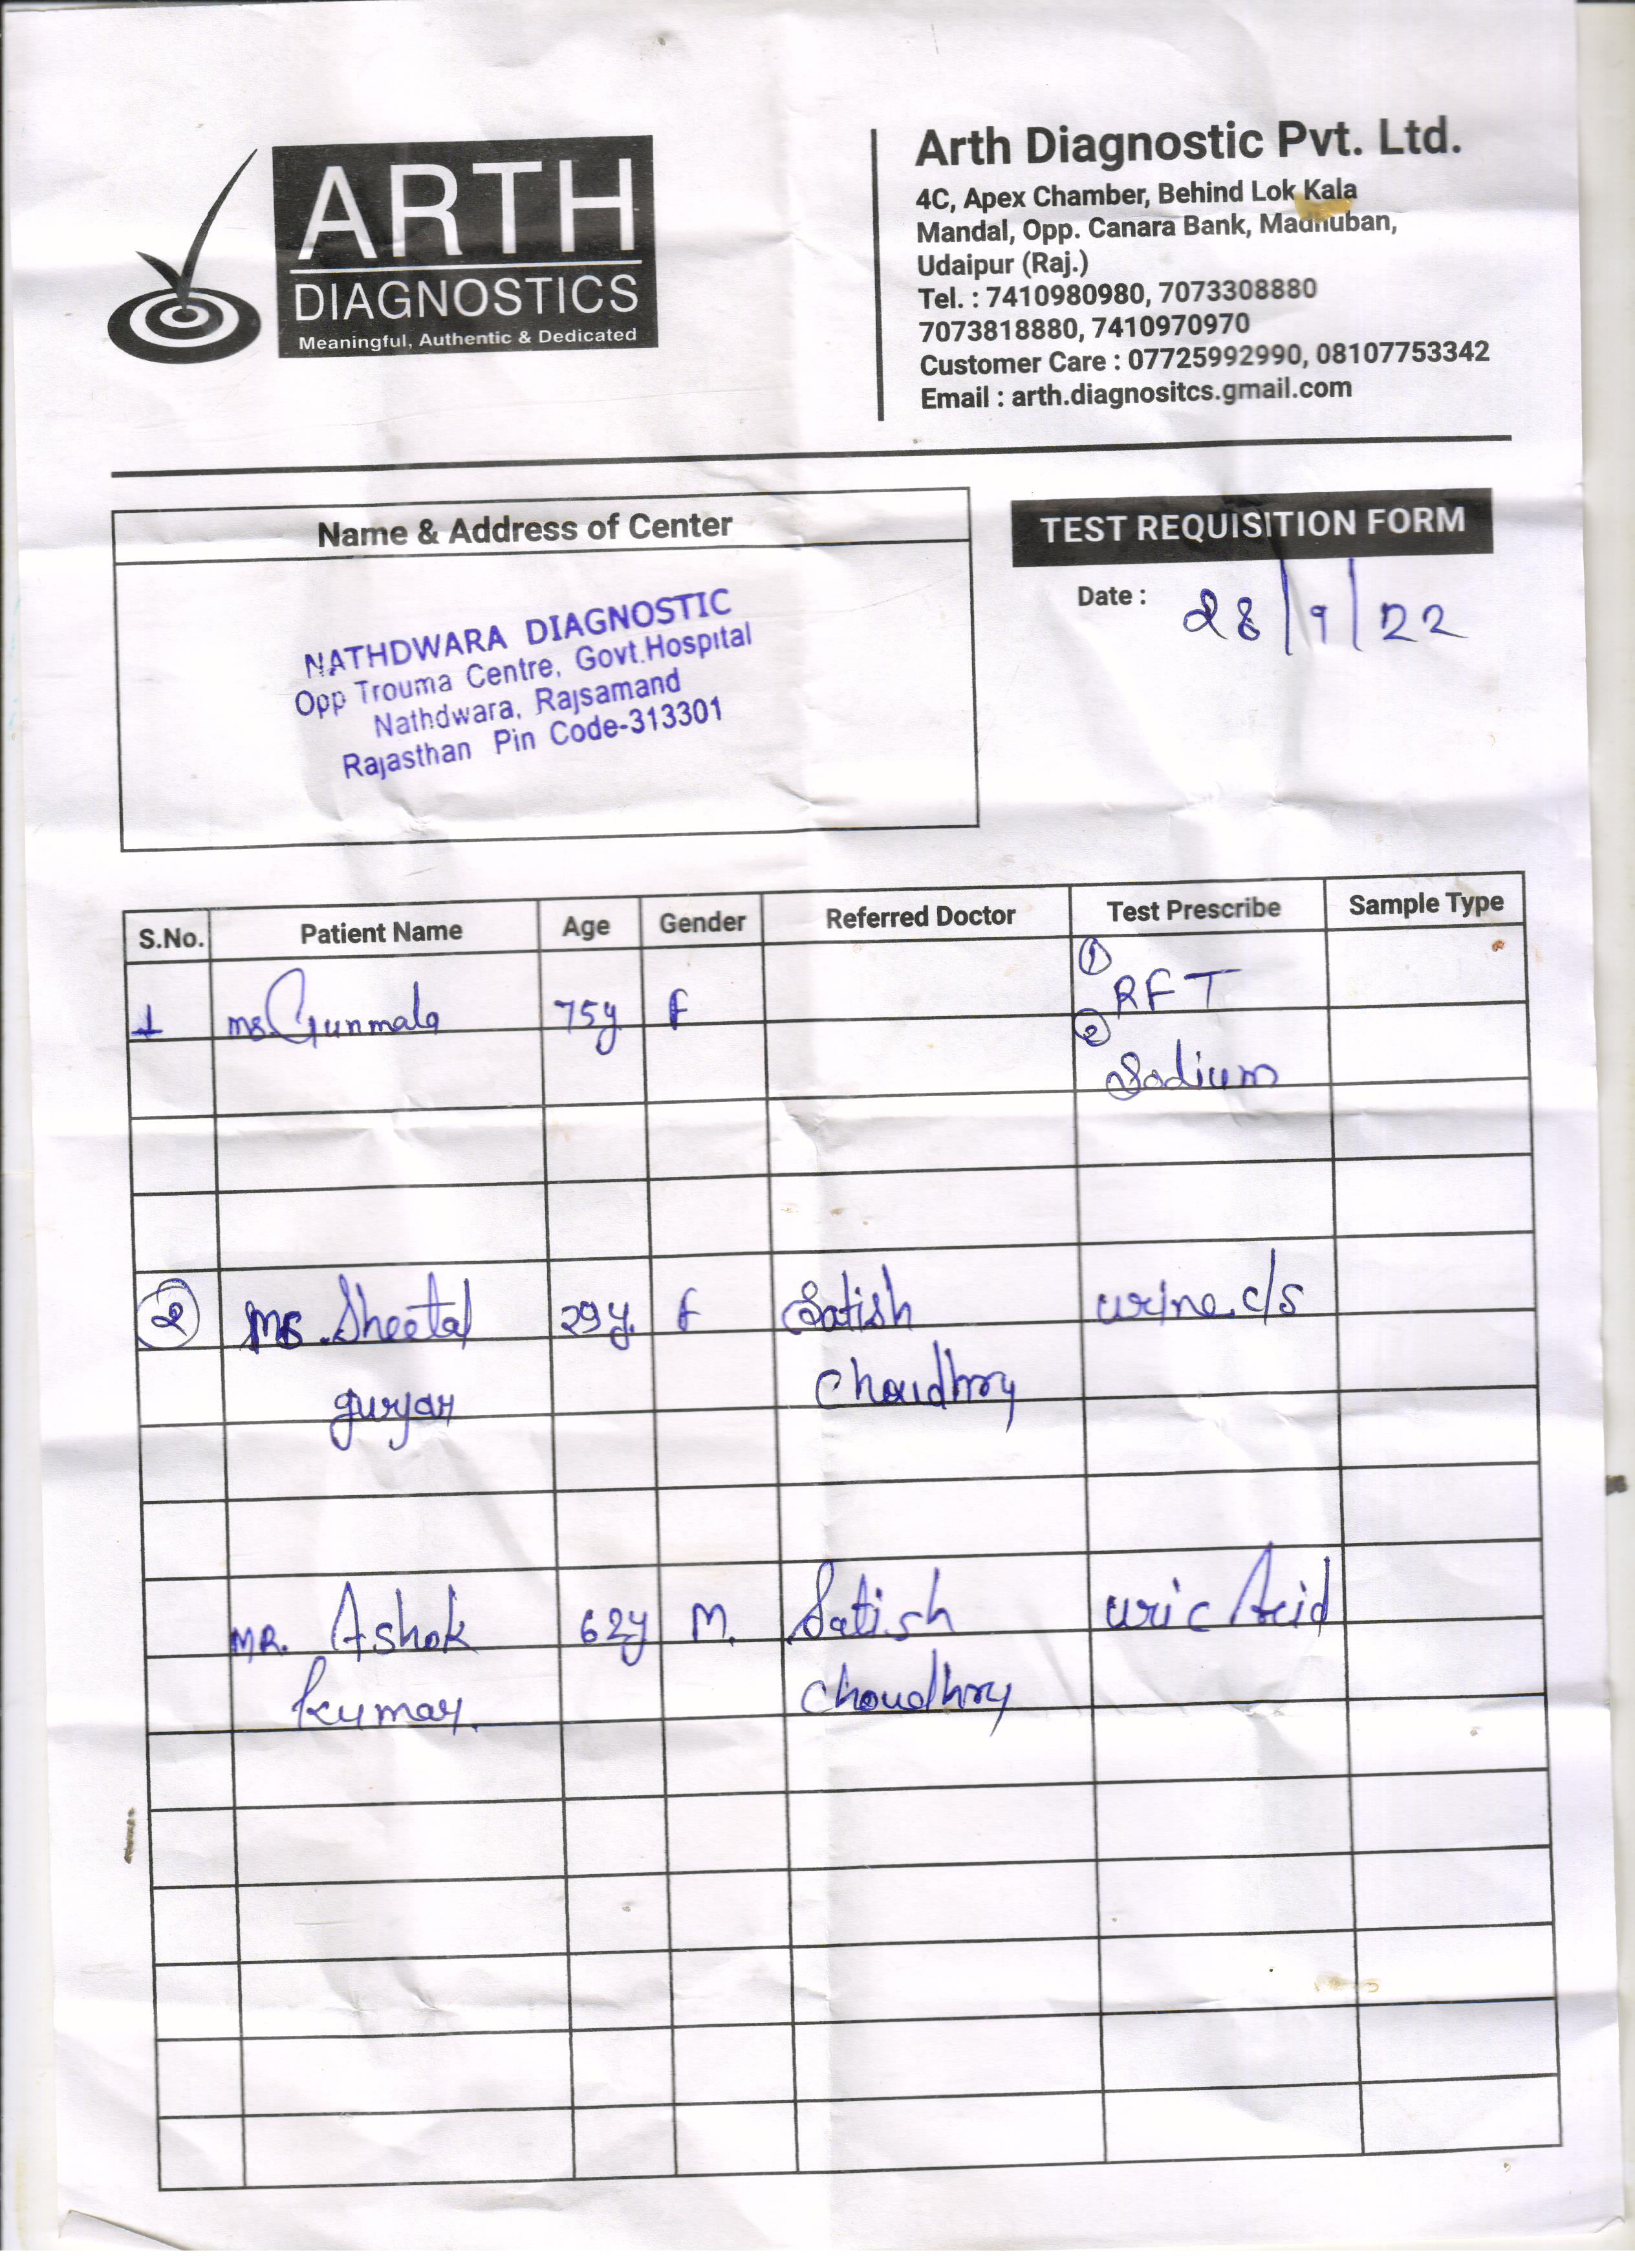 ARTH
DIAGNOSTICS
Meaningful, Authentic & Dedicated
Arth Diagnostic Pvt. Ltd.
4C, Apex Chamber, Behind Lok Kala
Mandal, Opp. Canara Bank, Madhuban,
Udaipur (Raj.)
Tel. : 7410980980, 7073308880
7073818880, 7410970970
Customer Care : 07725992990, 08107753342
Email : arth.diagnositcs.gmail.com
Name & Address of Center
NATHDWARA DIAGNOSTIC
Opp Trouma Centre, Govt.Hospital
Nathdwara, Rajsamand
Rajasthan Pin Code-313301
TEST REQUISITION FORM
Date : 28/9/22
S.No. Patient Name Age Gender Referred Doctor Test Prescribe Sample Type
1 ms. Gunmala 75y F ① RFT
② Sodium
② Ms. Sheetal 29y. F Satish urine c/s
gurjar choudhry
MR. Ashok 62y M. Satish uric Acid
kumar. choudhry